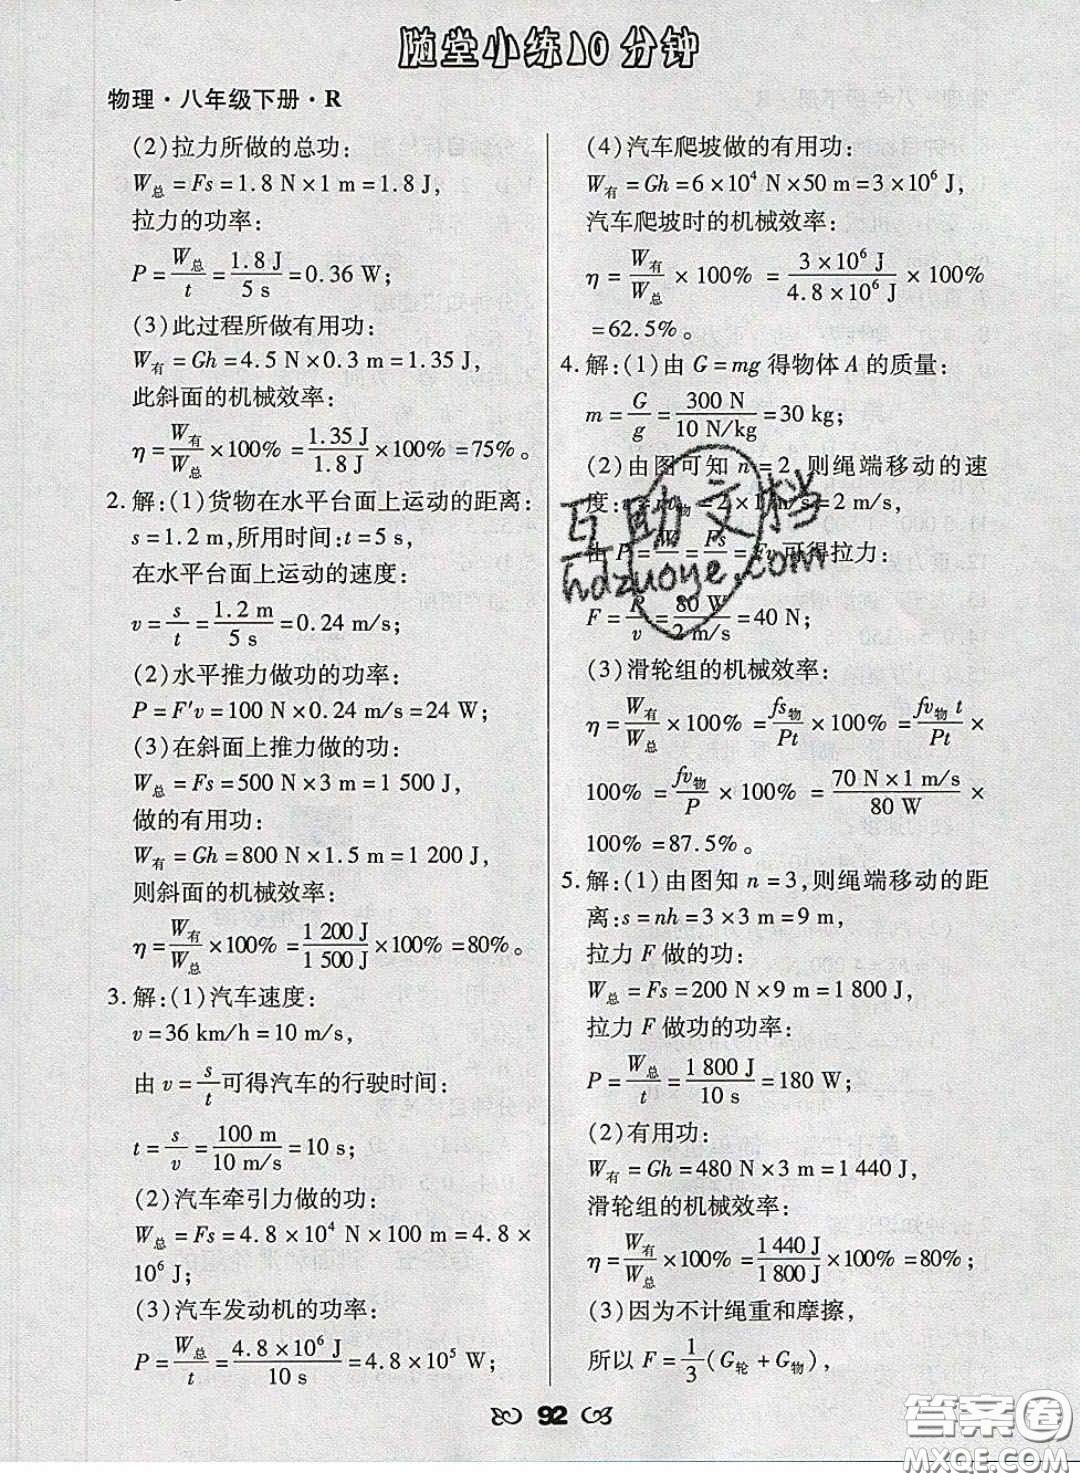 随堂小练10分钟
物理·八年级下册·R
(2)拉力所做的总功:
W总=Fs=1.8 N×1 m=1.8 J,
拉力的功率:
P=W总/t=1.8 J/5 s=0.36 W;
(3)此过程所做有用功:
W有=Gh=4.5 N×0.3 m=1.35 J,
此斜面的机械效率:
η=W有/W总×100%=1.35 J/1.8 J×100%=75%。
2.解:(1)货物在水平台面上运动的距离:
s=1.2 m,所用时间:t=5 s,
在水平台面上运动的速度:
v=s/t=1.2 m/5 s=0.24 m/s;
(2)水平推力做功的功率:
P=F′v=100 N×0.24 m/s=24 W;
(3)在斜面上推力做的功:
W总=Fs=500 N×3 m=1 500 J,
做的有用功:
W有=Gh=800 N×1.5 m=1 200 J,
则斜面的机械效率:
η=W有/W总×100%=1 200 J/1 500 J×100%=80%。
3.解:(1)汽车速度:
v=36 km/h=10 m/s,
由 v=s/t可得汽车的行驶时间:
t=s/v=100 m/10 m/s=10 s;
(2)汽车牵引力做的功:
W总=Fs=4.8×10⁴ N×100 m=4.8×
10⁶ J;
(3)汽车发动机的功率:
P=W总/t=4.8×10⁶ J/10 s=4.8×10⁵ W;
(4)汽车爬坡做的有用功:
W有=Gh=6×10⁴ N×50 m=3×10⁶ J,
汽车爬坡时的机械效率:
η=W有/W总×100%=3×10⁶ J/4.8×10⁶ J×100%
=62.5%。
4.解:(1)由 G=mg 得物体 A 的质量:
m=G/g=300 N/10 N/kg=30 kg;
(2)由图可知 n=2,则绳端移动的速
度:v=nv物=2×1 m/s=2 m/s,
由 P=W/t=Fs/t=Fv 可得拉力:
F=P/v=80 W/2 m/s=40 N;
(3)滑轮组的机械效率:
η=W有/W总×100%=fs物/Pt×100%=fv物t/Pt×
100%=fv物/P×100%=70 N×1 m/s/80 W×
100%=87.5%。
5.解:(1)由图知 n=3,则绳端移动的距
离:s=nh=3×3 m=9 m,
拉力 F 做的功:
W总=Fs=200 N×9 m=1 800 J,
拉力 F 做功的功率:
P=W总/t=1 800 J/10 s=180 W;
(2)有用功:
W有=Gh=480 N×3 m=1 440 J,
滑轮组的机械效率:
η=W有/W总×100%=1 440 J/1 800 J×100%=80%;
(3)因为不计绳重和摩擦,
所以 F=1/3(G轮+G物),
92
互助文档
hdzuoye.com
答案圈
MXQE.COM